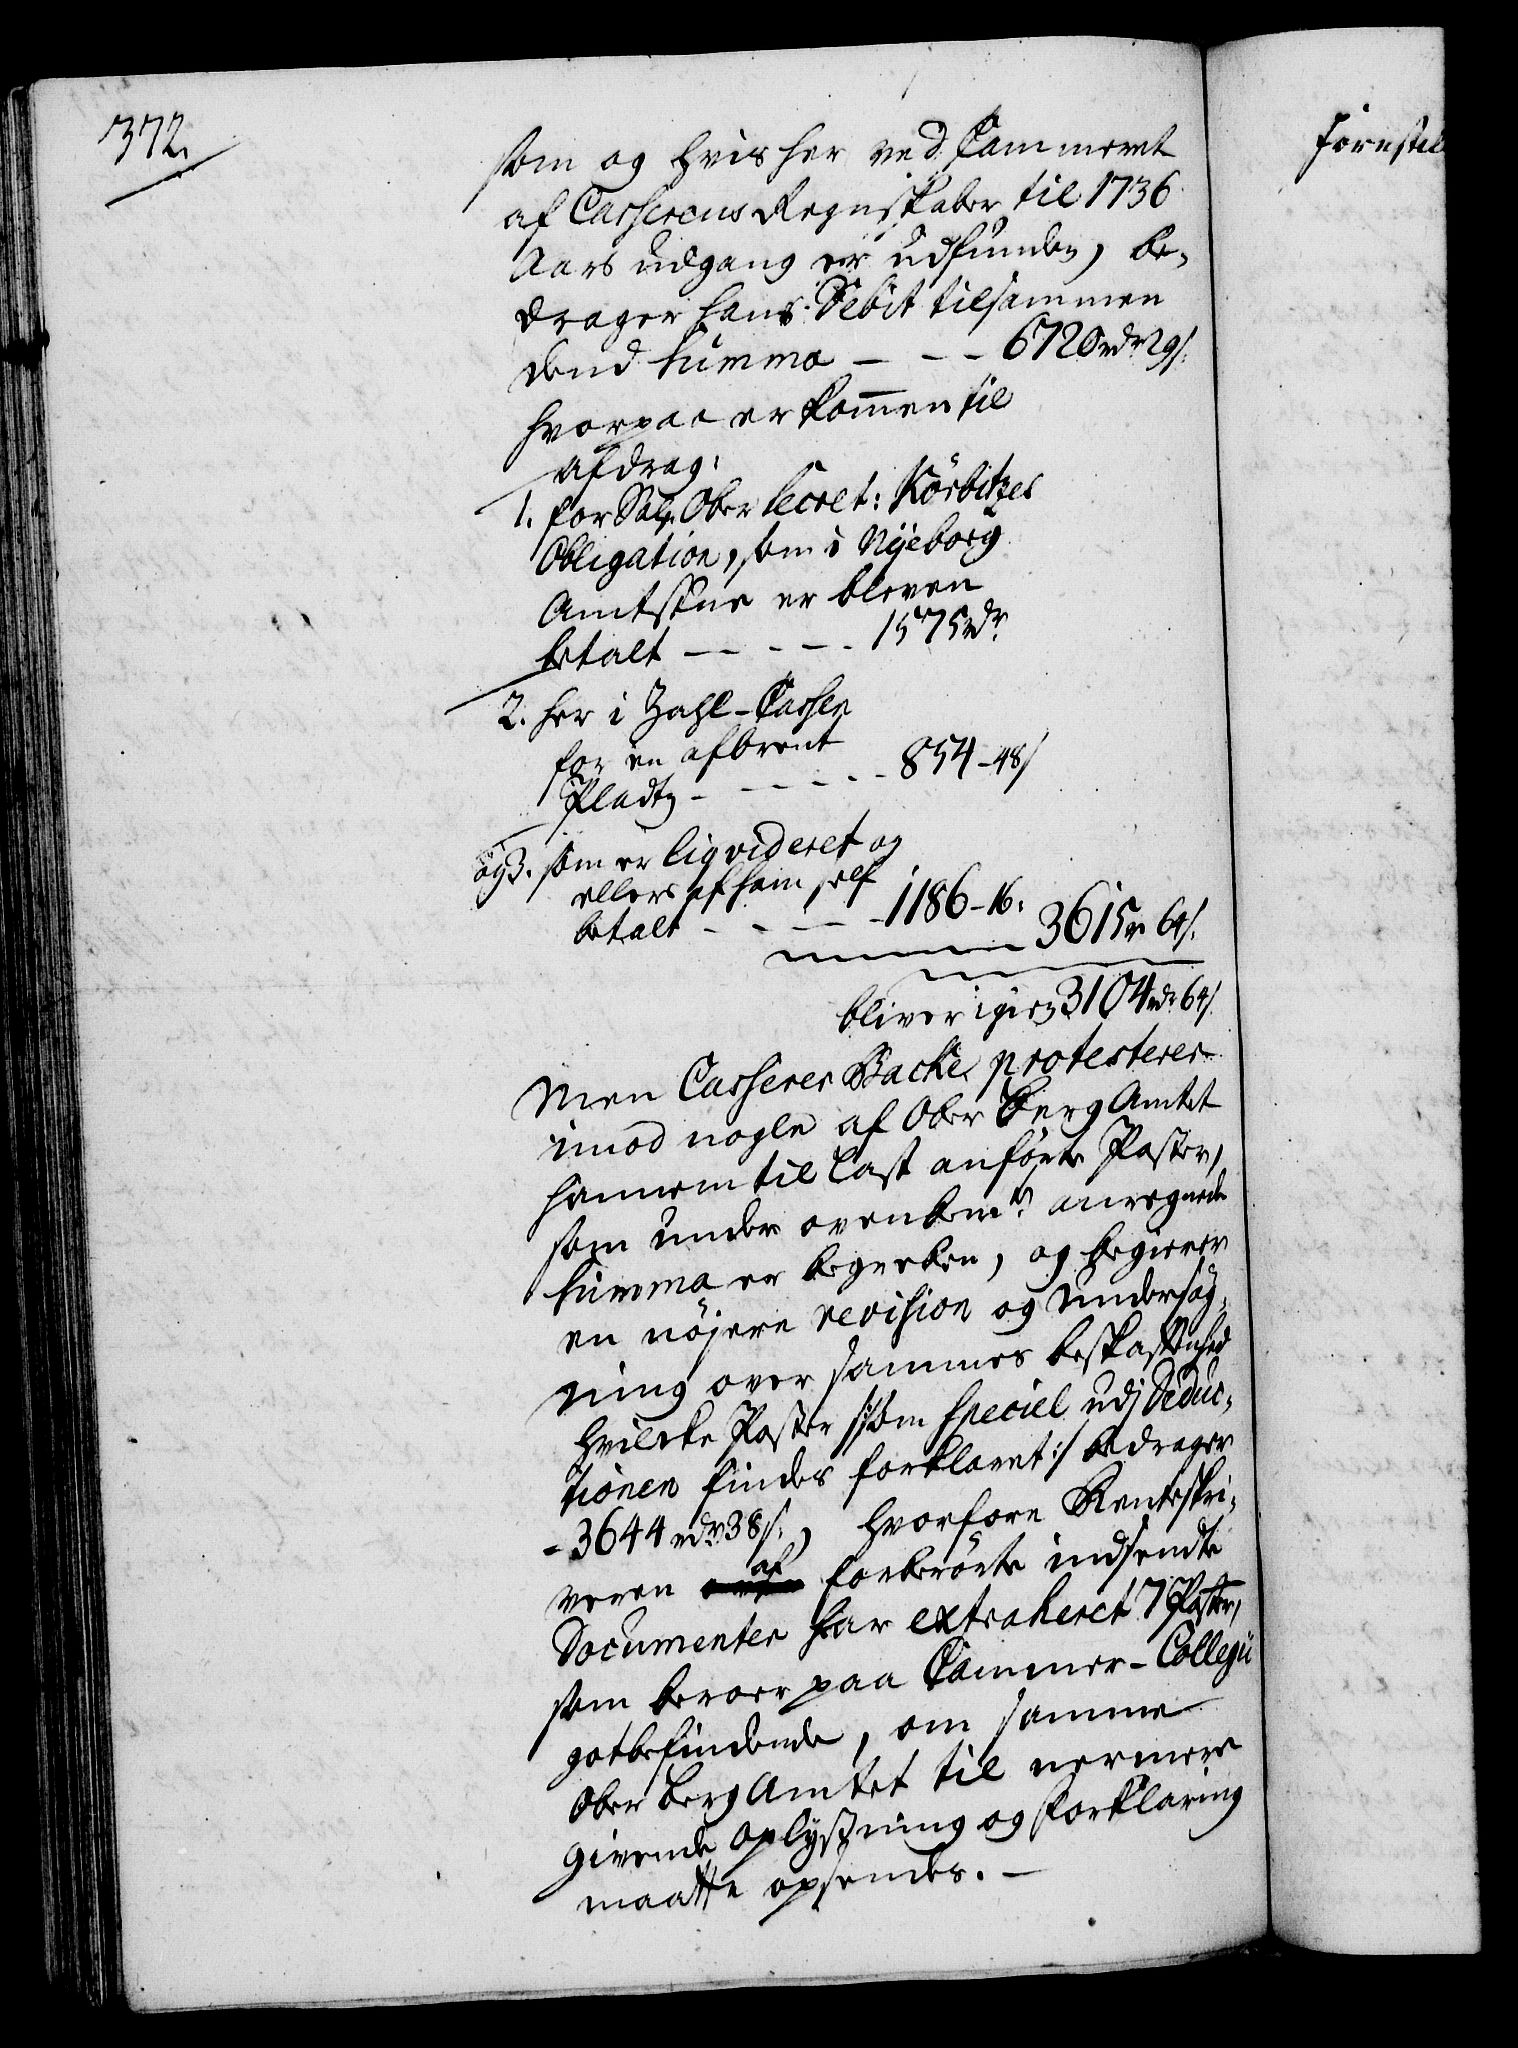 372.
som og hvis her ved Cammeret
af Casserens Regnskaber til 1736
Aars udgang er udfunden, be-
drager hans Debit tilsammen
dend Summa - - - 6720 rdr 29 s:
hvorpaa er kommen til
afdrag:
1. for Sal. Ober Secret: Körbitzes
Obligation, som i Nyeborg
Amtstue er bleven
betalt - - - - - 1575 rdr
2. her i Zahl-Cassen
for en afbrent
Pladtz - - - - - 854 - 48 s
og 3. som er liqvideret og
ellers af ham self
betalt - - - - - 1186 - 16:
3615 r 64 s.
bliver igien 3104 rdr 64 s.
Men Casserer Backe protesterer
imod nogle af Ober Berg Amtet
hannem til Last anförte Poster,
som under ovenbemte anregnede
Summa er begreben, og begierer
en nöjere revision og undersög-
ning over sammes beskaffenhed
hvilcke Poster /:som Speciel udj Deduc-
tionen findes forklaret:/ bedrager
- 3644 rdr 38 s:, hvorfore Renteskri-
veren af forberörte indsendte
Documenter har extraheret 7 Poster,
som beroer paa Cammer-Collegii
gotbefindende, om samme
Ober Berg Amtet til nermere
givende oplysning og forklaring
maatte opsendes. -
forestil